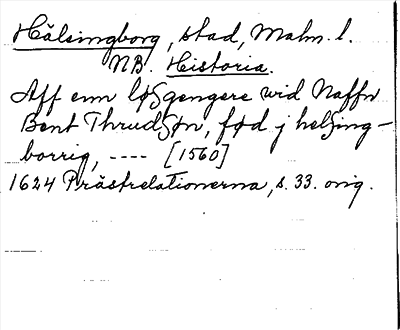 Hälsingborg, stad, Malm. l.
NB. Historia.
Aff enn løsgengere wid Naffn
Bent Thrudsøn, fød j helsing-
borrig, ---- [1560]
1624 Prästrelationerna, s. 33. orig.